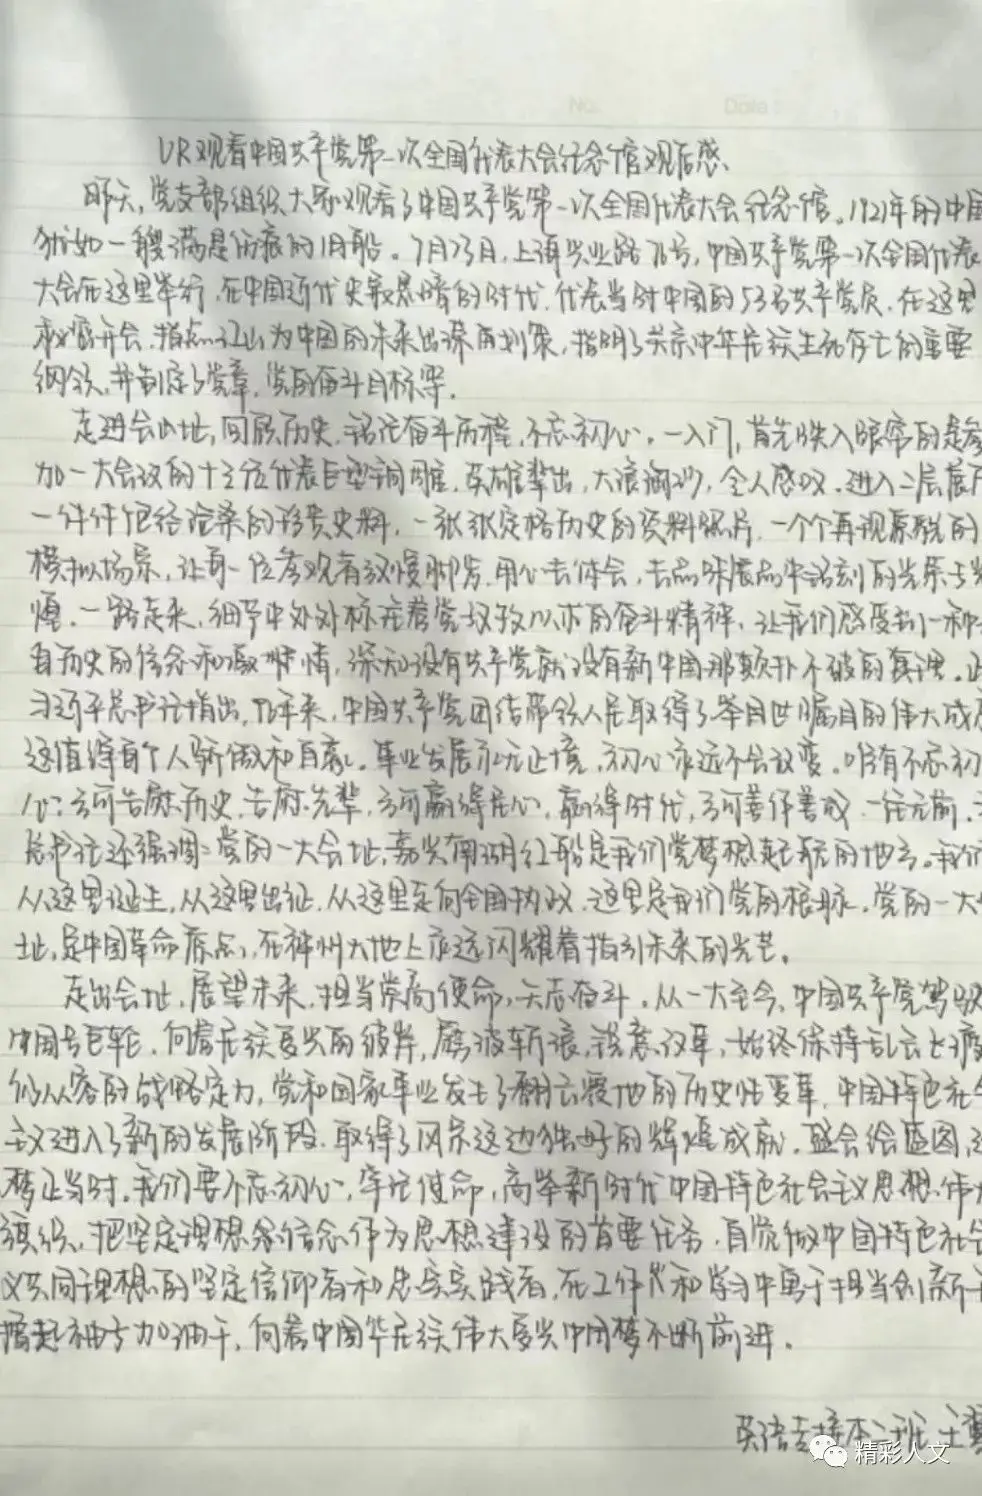 No.
Date
VR观看中国共产党第一次全国代表大会纪念馆观后感、
昨天,党支部组织大家观看了中国共产党第一次全国代表大会纪念馆。1921年的中国
犹如一艘满是伤痕的旧船。7月23日,上海兴业路76号,中国共产党第一次全国代表
大会在这里举行,在中国近代史最黑暗的时代,代表当时中国的53名共产党员,在这里
秘密开会,指点江山为中国的未来出谋划策,指明了关系中华民族生死存亡的重要
纲领,并制定了党章,党的奋斗目标等。
走进会址,回顾历史,铭记奋斗历程,不忘初心。一入门,首先映入眼帘的是参
加一大会议的十三位代表巨型铜雕,英雄辈出,大浪淘沙,令人感叹。进入二层展厅
一件件饱经沧桑的珍贵史料,一张张定格历史的资料照片,一个个再现原貌的
模拟场景,让每一位参观者放慢脚步,用心去体会,去品味展品中铭刻的光荣与辉
煌。一路走来,细节中处处标注着党孜孜以求的奋斗精神,让我们感受到一种
自历史的信念和激情,深知没有共产党就没有新中国那颠扑不破的真理。
习近平总书记指出,九十年来,中国共产党团结带领人民取得了举世瞩目的伟大成
这值得每个人骄傲和自豪。事业发展永无止境,初心永远不会改变。唯有不忘初
心,方可告慰历史,告慰先辈,方可赢得民心,赢得时代,方可善作善成,一往无前。
总书记还强调:党的一大会址,嘉兴南湖红船是我们党梦想起航的地方。我们
从这里诞生,从这里出征,从这里走向全国执政。这里是我们党的根脉。党的一大
址,是中国革命原点,在神州大地上永远闪耀着指引未来的光芒。
走出会址,展望未来,担当崇高使命,矢志奋斗。从一大至今,中国共产党驾驭
中国号巨轮,向着民族复兴的彼岸,劈波斩浪,锐意改革,始终保持乱云飞渡
仍从容的战略定力,党和国家事业发生了翻云覆地的历史性变革,中国特色社会
主义进入了新的发展阶段,取得了风景这边独好的辉煌成就。盛会绘蓝图,
梦正当时。我们要不忘初心,牢记使命,高举新时代中国特色社会主义思想伟大
旗帜,把坚定理想信念作为思想建设的首要任务,自觉做中国特色社会
义共同理想的坚定信仰者和忠实实践者,在工作和学习中勇于担当创新
撸起袖子加油干,向着中国华民族伟大复兴中国梦不断前进。
英语专接本二班 王
精彩人文